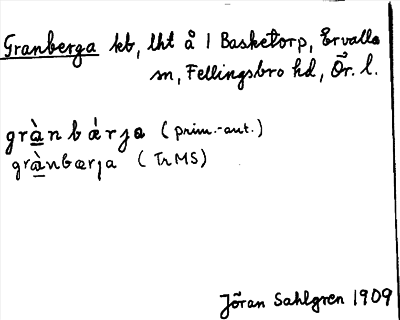 Granberga kb, lht å 1 Basketorp, Ervalla
sn, Fellingsbro hd, Ör. l.
grànbǽrja (prim.-ant.)
grànbærja (TrMS)
Jöran Sahlgren 1909